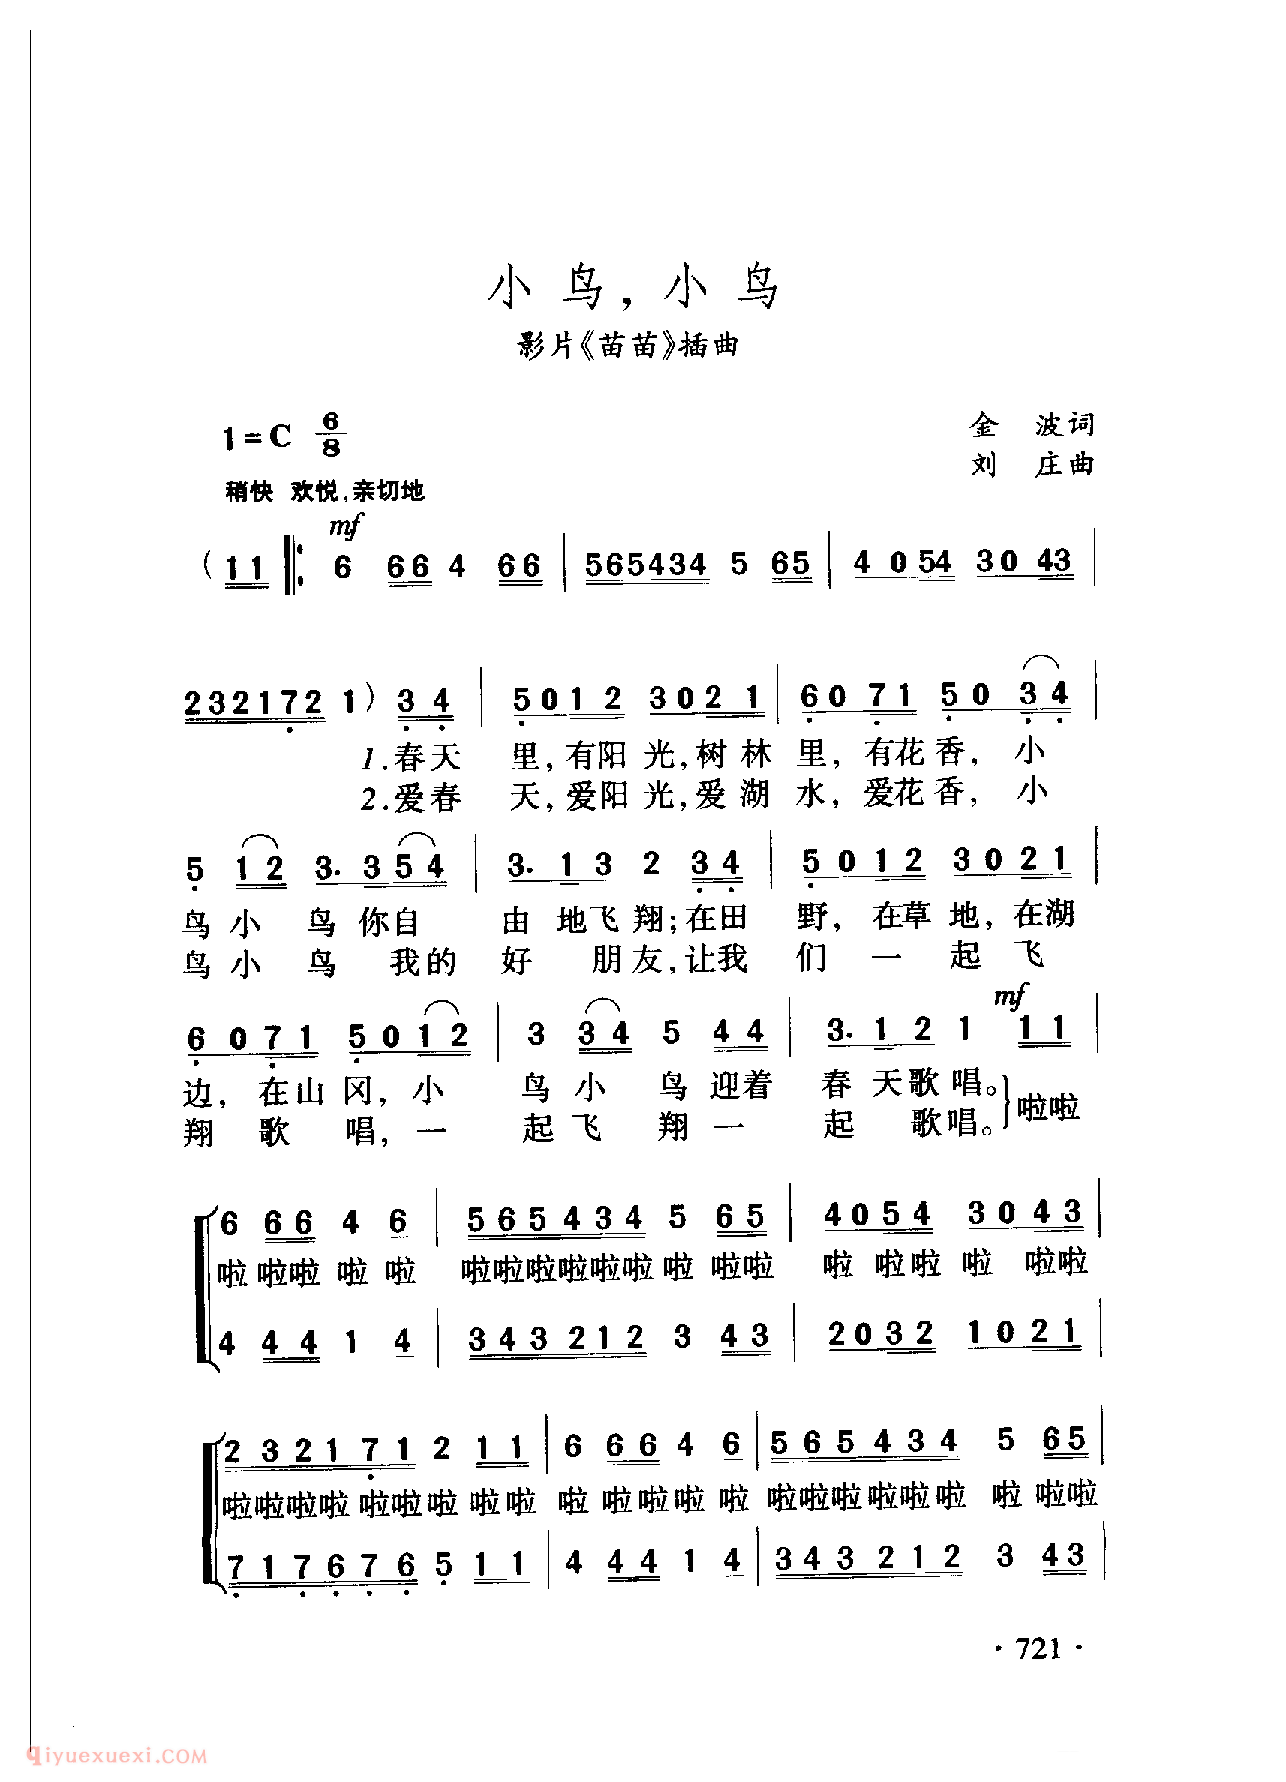 小鸟，小鸟
影片《苗苗》插曲
1=C 6/8
金 波词
刘 庄曲
稍快 欢悦，亲切地
mf
( 1 1 ‖: 6 6 6 4 6 6 | 5 6 5 4 3 4 5 6 5 | 4 0 5 4 3 0 4 3 |
2 3 2 1 7 2 1 ) 3 4 | 5 0 1 2 3 0 2 1 | 6 0 7 1 5 0 3 4 |
1.春天 里，有阳光，树林里，有花香，小
2.爱春 天，爱阳光，爱湖水，爱花香，小
5 1 2 3· 3 5 4 | 3· 1 3 2 3 4 | 5 0 1 2 3 0 2 1 |
鸟小 鸟你自 由地飞翔；在田 野，在草地，在湖
鸟小 鸟 我的 好 朋友，让我 们 一 起 飞
mf
6 0 7 1 5 0 1 2 | 3 3 4 5 4 4 | 3· 1 2 1 1 1 |
边，在山冈，小 鸟小 鸟迎着 春天歌唱。}啦啦
翔 歌 唱，一 起飞 翔一 起 歌唱。
6 6 6 4 6 | 5 6 5 4 3 4 5 6 5 | 4 0 5 4 3 0 4 3 |
啦 啦啦 啦 啦 啦啦啦啦啦啦 啦 啦啦 啦 啦啦 啦 啦啦
4 4 4 1 4 | 3 4 3 2 1 2 3 4 3 | 2 0 3 2 1 0 2 1 |
2 3 2 1 7 1 2 1 1 | 6 6 6 4 6 | 5 6 5 4 3 4 5 6 5 |
啦啦啦啦 啦啦啦 啦啦 啦 啦啦啦 啦 啦啦啦啦啦啦 啦 啦啦
7 1 7 6 7 6 5 1 1 | 4 4 4 1 4 | 3 4 3 2 1 2 3 4 3 |
· 721 ·
qiyuexuexi.COM